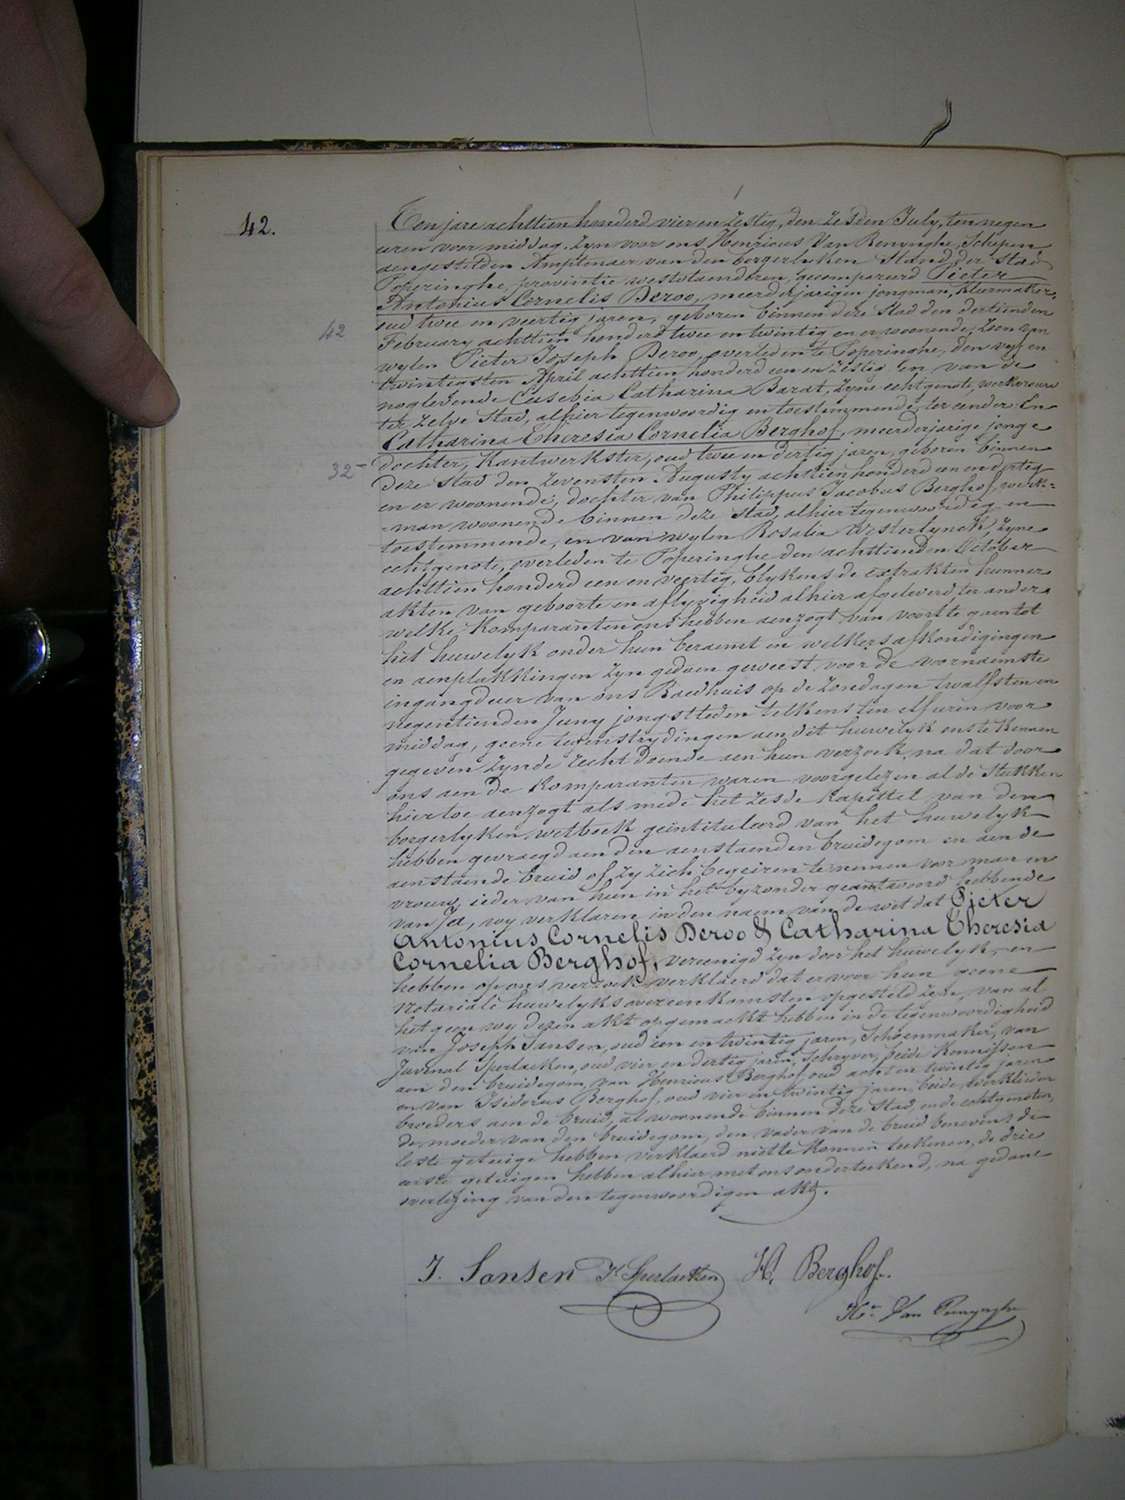 42.
Ten jare achttien honderd vier en zestig, den zesden July, ten negen
uren voor middag. Zyn voor ons Henricus Van Renynghe, Schepen
aengestelden Amptenaer van den borgerlyken Stand der Stad
Poperinghe, provintie westvlaenderen, gecompareerd Pieter
Antonius Cornelis Deroo, meerderjarigen jongman, kleermaker,
oud twee en veertig jaren, geboren binnen deze stad den dertienden
42
February achttien honderd twee en twintig en er woonende, zoon van
wylen Pieter Joseph Deroo, overleden te Poperinghe, den vyf en
twintigsten April achttien honderd een en zestig en van de
noglevende Eusebia Catharina Barat, zyne echtgenote, werkvrouw
ter zelve Stad, alhier tegenwoordig en toestemmende, ter eender En
Catharina Theresia Cornelia Berghof, meerderjarige jonge
dochter, Kantwerkster, oud twee en dertig jaren, geboren binnen
32
deze stad den zevensten Augusty achttien honderd een en dertig
en er woonende, dochter van Philippus Jacobus Berghof, werk=
=man woonende binnen deze Stad, alhier tegenwoordig en
toestemmende, en van wylen Rosalia Westerlynck, zyne
echtgenote, overleden te Poperinghe den achttienden October
achttien honderd een en veertig, blykens de extrakten hunner
akten van geboorte en aflyvigheid alhier afgeleverd, ter ander
welke Komparanten ons hebben aenzogt van voorts te gaen tot
het huwelyk onder hun beraemt en welkers afkondigingen
en aenplakkingen zyn gedaen geweest voor de voornaemste
ingangdeur van ons Raedhuis op de zondagen twalfsten en
negentienden Juny jongstleden telkens ten elf uren voor
middag, geene tweenstrydingen aen dit huwelyk ons te kennen
gegeven zynde recht doende aen hun verzoek, na dat door
ons aen de Komparanten waren voorgelezen al de Stukken
hiertoe aenzogt als mede het zesde kapittel van den
borgerlyken wetboek geïntituleerd van het huwelyk
hebben gevraegd aen den aenstaenden bruidegom en aen de
aenstaende bruid of zy zich begeiren te nemen voor man en
vrouw, ieder van hun in het byzonder geantwoord hebbende
van ja, wy verklaren in den naem van de wet dat Pieter
Antonius Cornelis Deroo & Catharina Theresia
Cornelia Berghof, vereenigd zyn door het huwelyk, en
hebben op ons verzoek verklaerd dat er voor hun geene
Notariele huwelyksovereenkomsten opgesteld zyn, van al
het geen wy dezen akt opgemaekt hebben in de tegenwoordigheid
van Joseph Sansen, oud een en twintig jaren, Schoenmaker, van
Juvenal Sperlaeken, oud vier en dertig jaren, Schryver, beide Konnissen
aen den bruidegom, van Henricus Berghof oud acht en twintig jaren
en van Isidorus Berghof, oud vier en twintig jaren, beide werklieden
broeders aen de bruid, al woonende binnen deze stad, en de echtgenoten,
de moeder van den bruidegom, den vader van de bruid benevens de
leste getuige hebben verklaerd niet te konnen teekenen, de drie
eerste getuigen hebben alhier met ons onderteekend, na gedane
overlezing van den tegenwoordigen akt.
J. Sansen Jl Sperlaeken H. Berghof.
Hri Van Renynghe